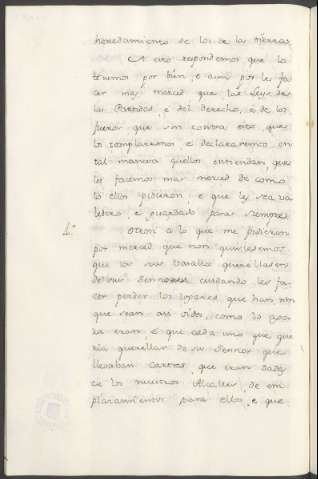 heredamiento de los de las ordenes
A esto respondemos que lo
tenemos por bien, e aun por les fa
cer mas merced que las leyes de
las Partidas, e del derecho, e de los
fueros que son contra esto, que
los templaremos, e declararemos en
tal manera quellos entiendan que
les facemos mas merced de como
lo ellos pidieron, e que les sea va
ledero, e guardado para siempre
Otrosi a lo que me pidieron
por merced que non quisiesemos
que los sus Vasallos querellasen
de sus Sennores cuidando les fa
cer perder los logares, que han non
que sean asi oidos, como lo
eran, e que cada uno que que
ria querellar de su Sennor que
llevaban cartas, que eran dadas
de los nuestros Alcalles, de em
plazamiento para ellos, e que